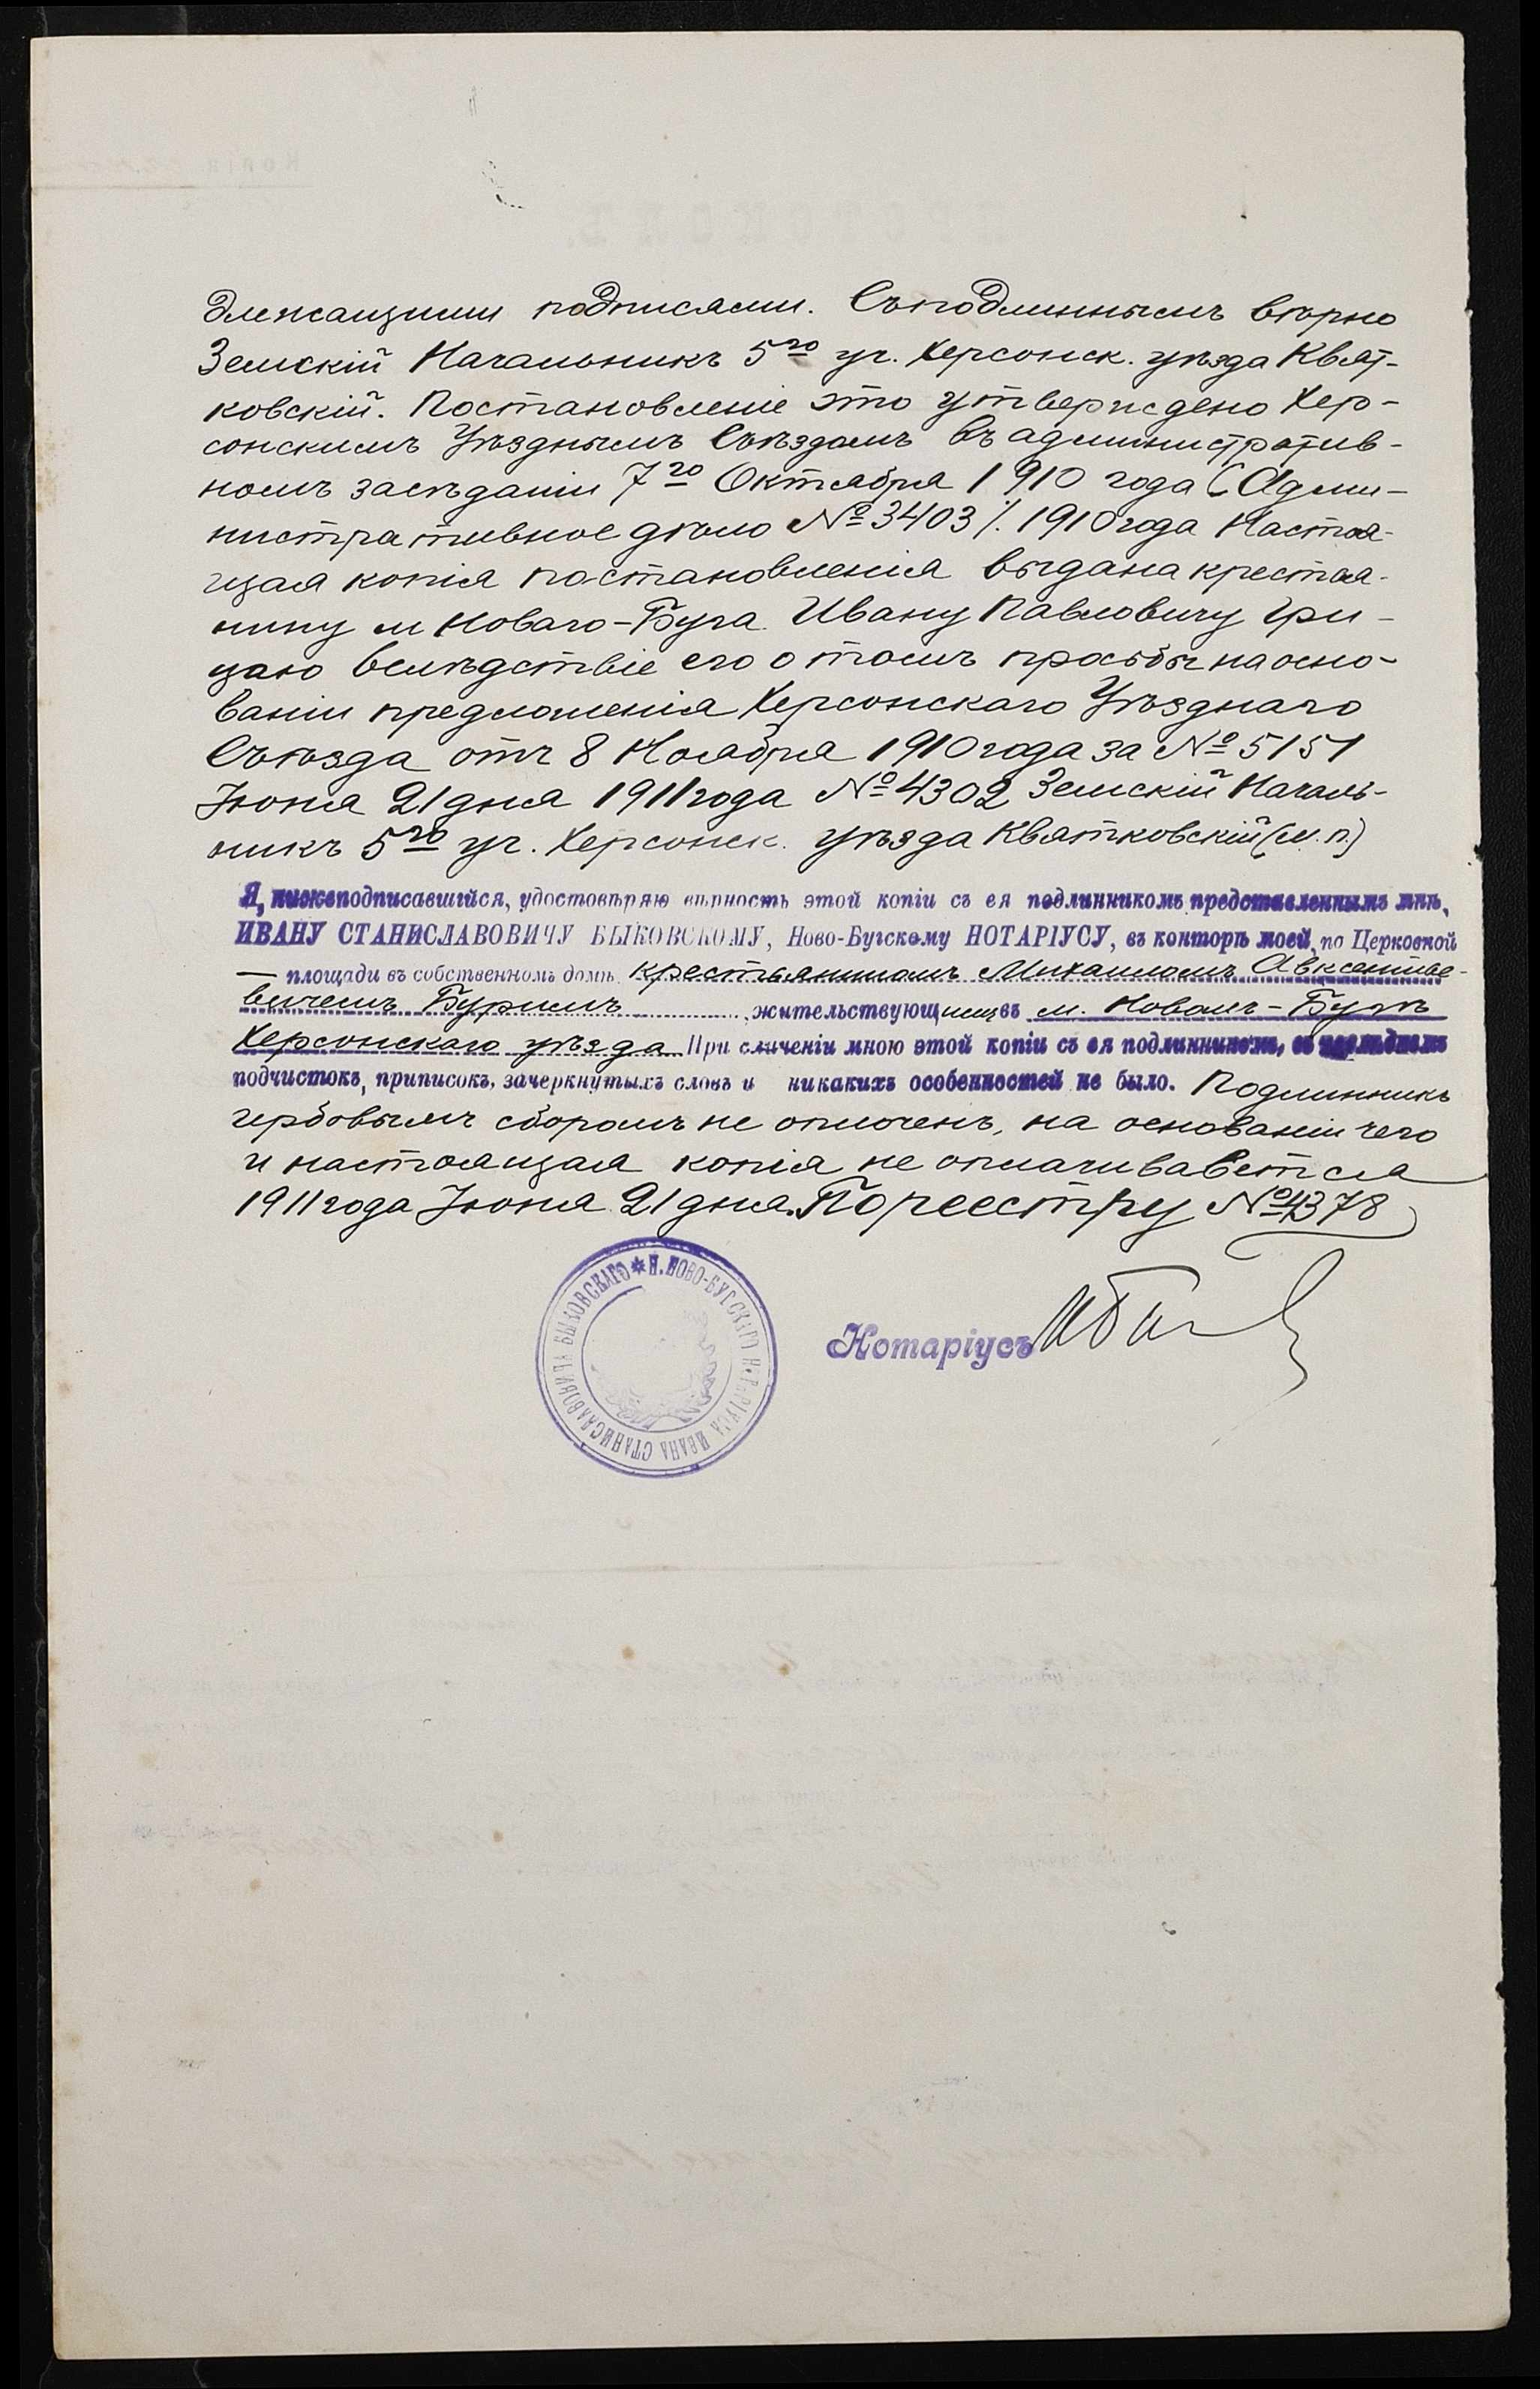 длежащими подписями. Съ подлиннымъ вѣрно
Земскій Начальникъ 5го уч. Херсонск. уѣзда Квят-
ковскій. Постановленіе это утверждено Хер-
сонскимъ Уѣзднымъ Съѣздомъ въ административ-
номъ засѣданіи 7го Октября 1910 года (Адми-
нистративное дѣло № 3403 /. 1910 года Настоя-
щая копія постановленія выдана крестья-
нину м Новаго-Буга Ивану Павловичу Гри-
цаю вслѣдствіе его о томъ просьбы на осно-
ваніи предложенія Херсонскаго Уѣзднаго
Съѣзда отъ 8 Ноября 1910 года за № 5151
Іюня 21 дня 1911 года № 4302 Земскій Началь-
никъ 5го уч. Херсонск. уѣзда Квятковскій (м.п.)
Я, нижеподписавшійся, удостовѣряю вѣрность этой копіи съ ея подлинникомъ представленнымъ мнѣ,
ИВАНУ СТАНИСЛАВОВИЧУ БЫКОВСКОМУ, Ново-Бугскому НОТАРІУСУ, въ конторѣ моей, по Церковной
— площади въ собственномъ домѣ крестьяниномъ Михаиломъ Авксентіе-
вичемъ Буримъ, жительствующимъ въ м. Новомъ-Бугѣ
Херсонскаго уѣзда При сличеніи мною этой копіи съ ея подлинникомъ, въ послѣднемъ
подчистокъ, приписокъ, зачеркнутыхъ словъ и никакихъ особенностей не было. Подлинникъ
гербовымъ сборомъ не оплоченъ, на основаніи чего
и настоящая копія не оплачивается
1911 года Іюня 21 дня. По реестру № 4378
Н. НОВО-БУГСКАГО НОТАРІУСА ИВАНА СТАНИСЛАВОВИЧА БЫКОВСКАГО
Нотаріусъ